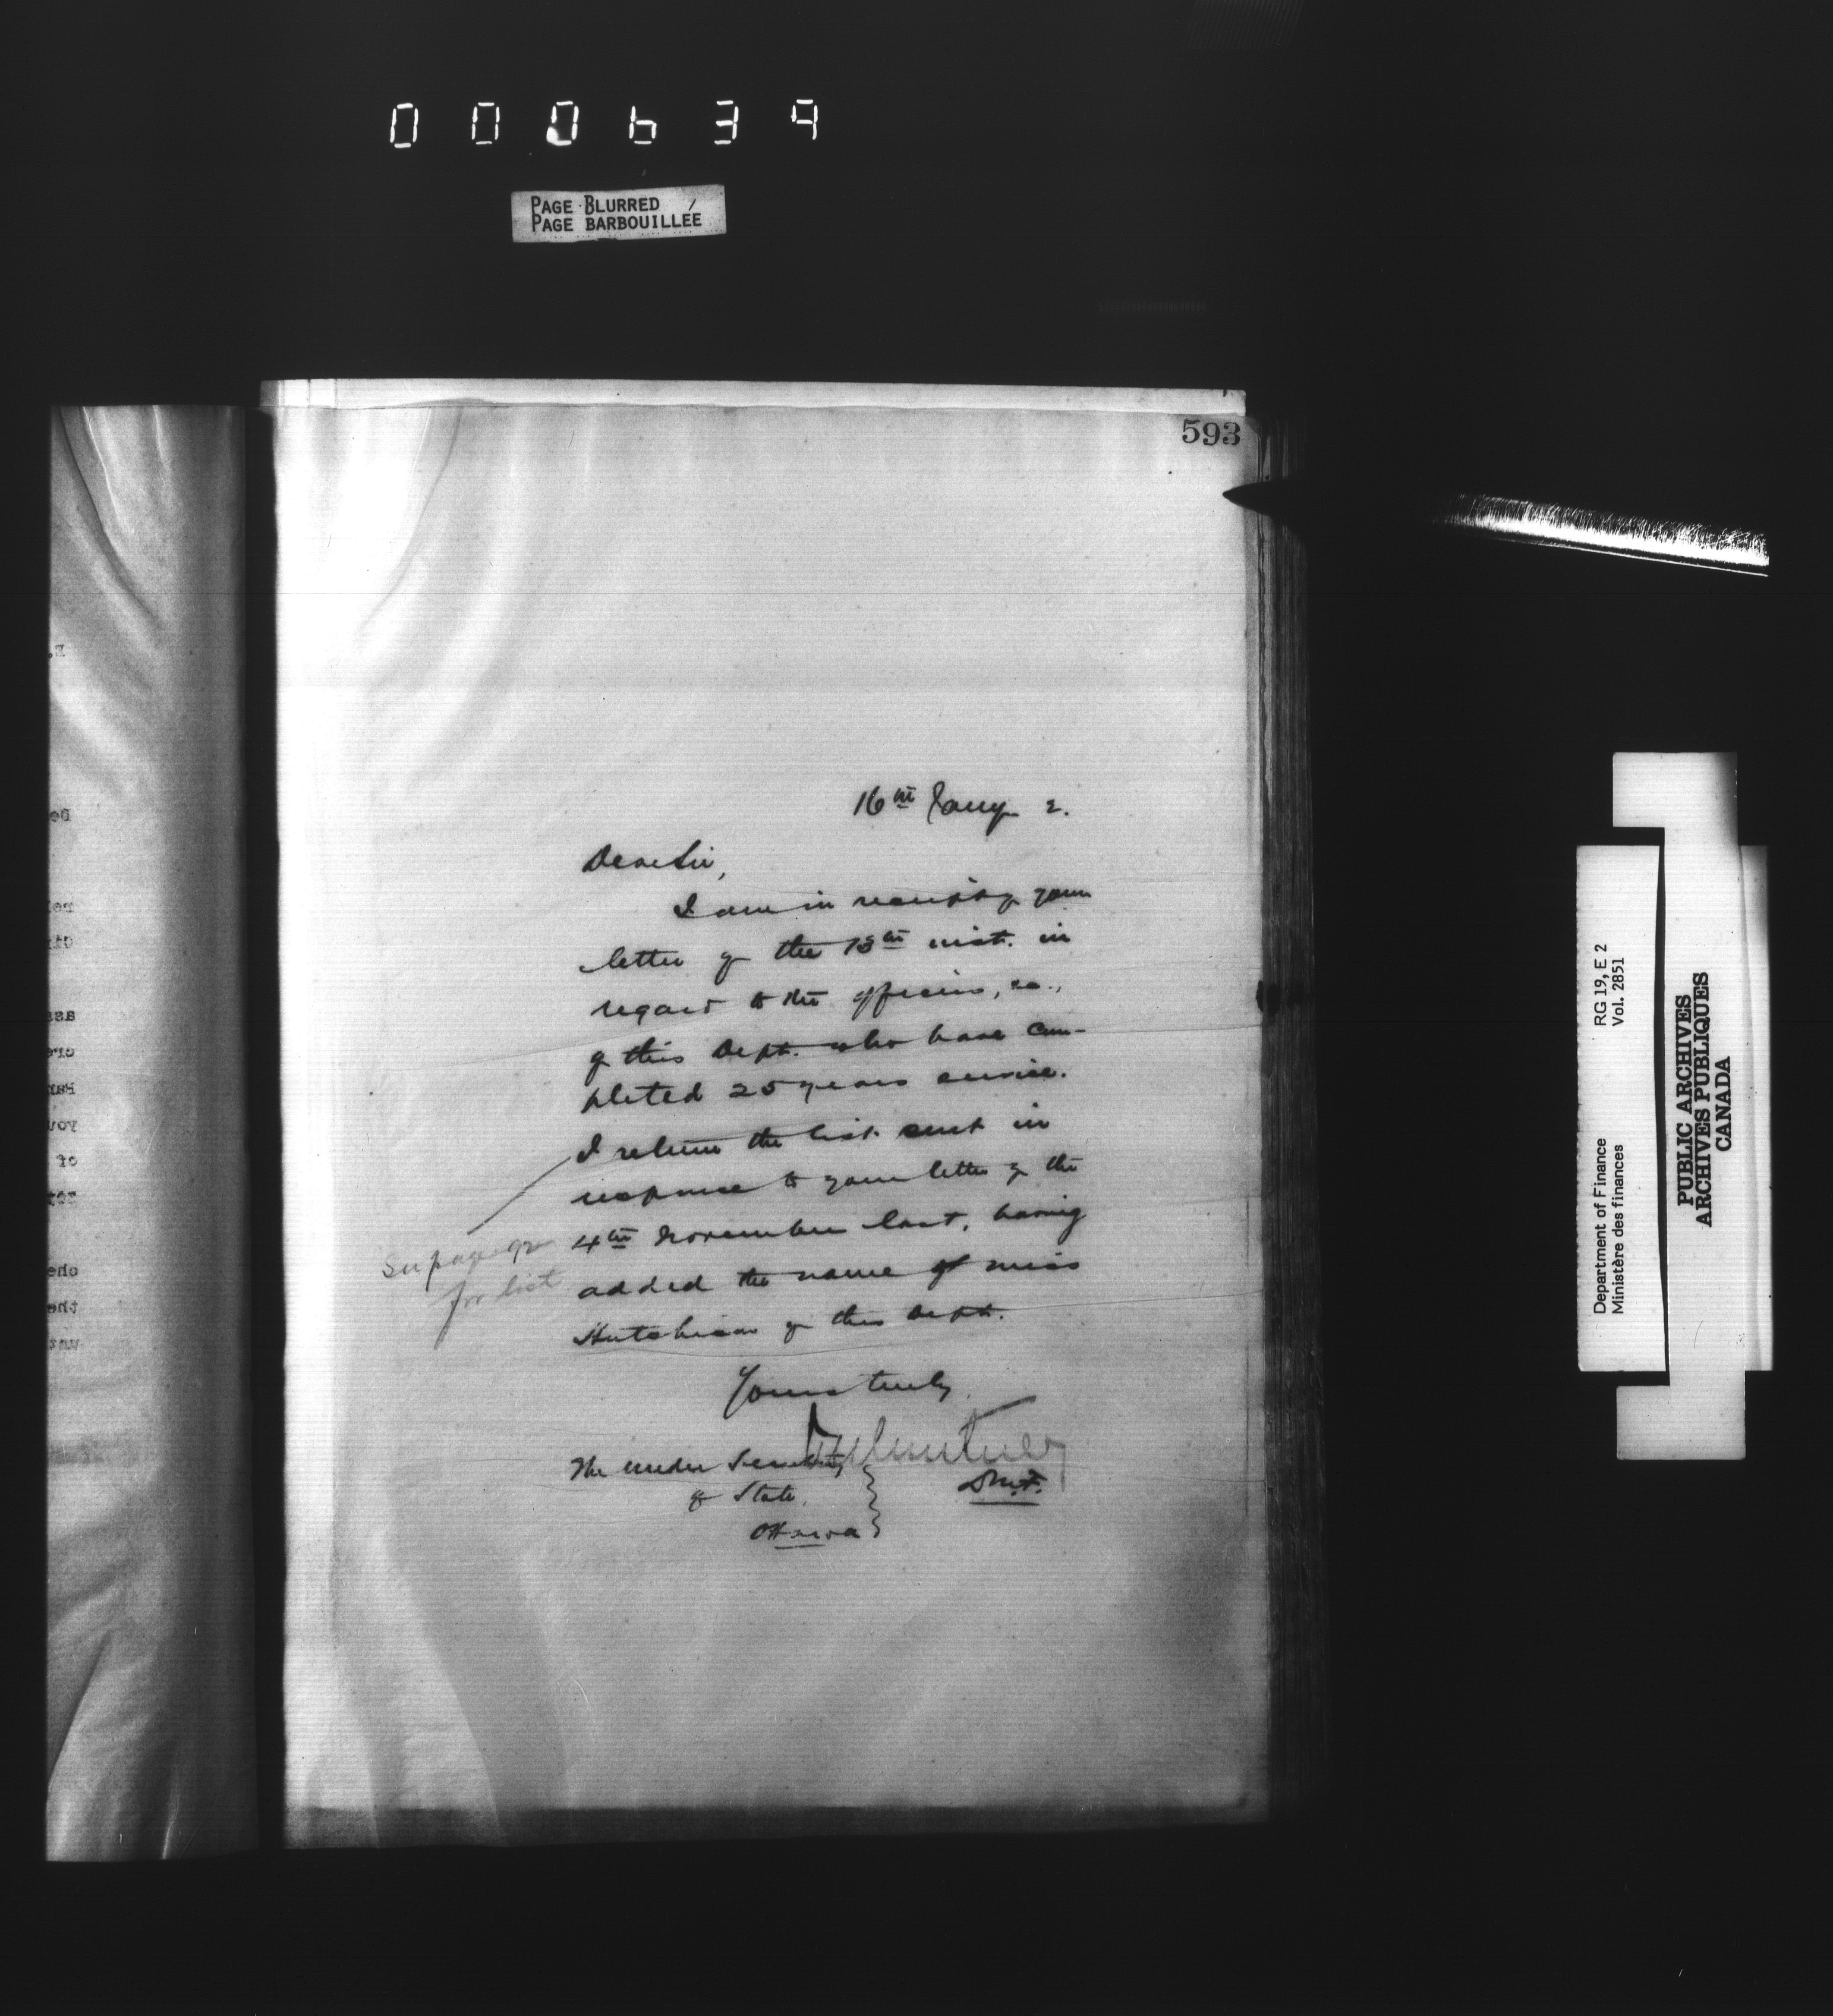 000639
PAGE BLURRED
PAGE BARBOUILLÉE
593
16th Jany 2.
Dear Sir,
I am in receipt of your
letter of the 13th inst. in
regard to the officers, &c.,
of this Dept. who have com-
pleted 25 years service.
I return the list sent in
response to your letter of the
4th November last, having
added the name of Miss
Hutchison of this Dept.
See page
for list
Yours truly,
D.M.F.
The Under Secretary
of State,
Ottawa
Department of Finance RG 19, E 2
Ministère des finances Vol. 2851
PUBLIC ARCHIVES
ARCHIVES PUBLIQUES
CANADA